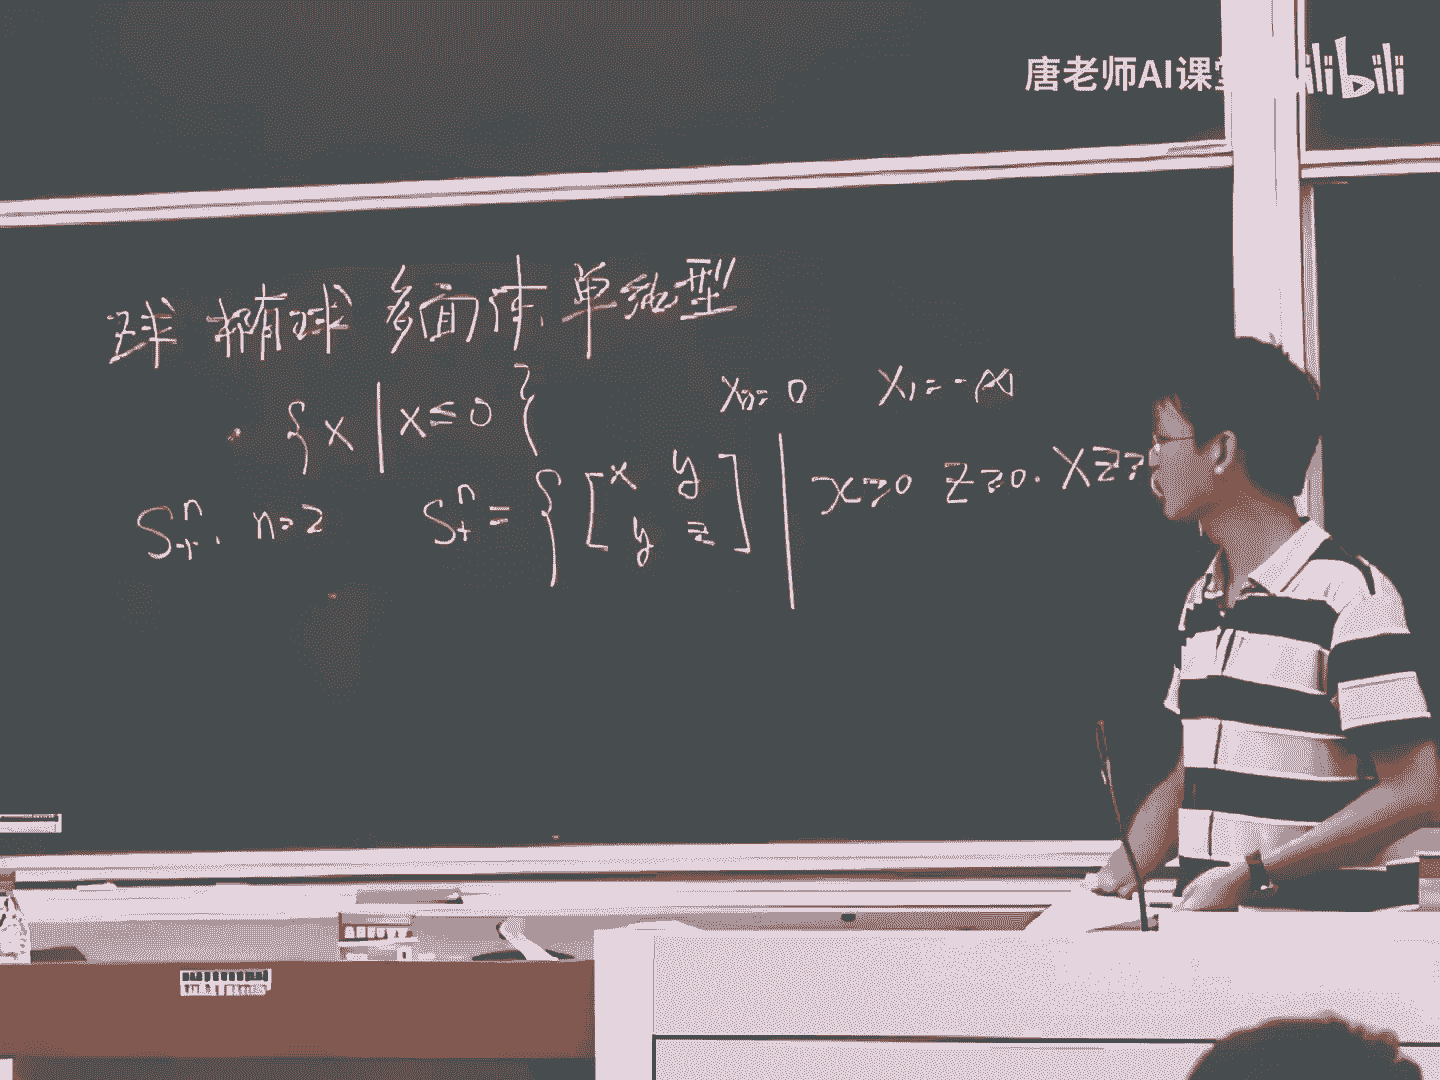 唐老师AI课 bilibili
球 椭球 多面体 单纯型
· {x | x ≤ 0} x₀ = 0 x₁ = -∞
S₊ⁿ. n=2 S₊ⁿ = { [x y; y z] | x≥0 z≥0. xz≥